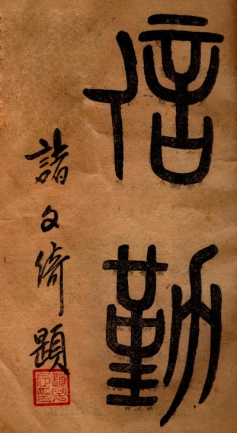 信勤
諸文綺題